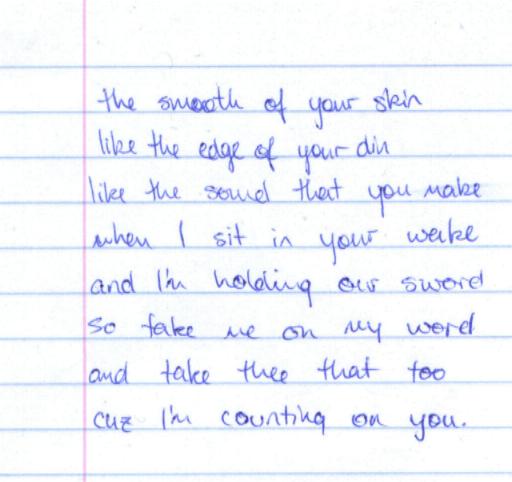 the smooth of your skin
like the edge of your din
like the sound that you make
when I sit in your wake
and I'm holding our sword
so take me on my word
and take thee that too
cuz I'm counting on you.